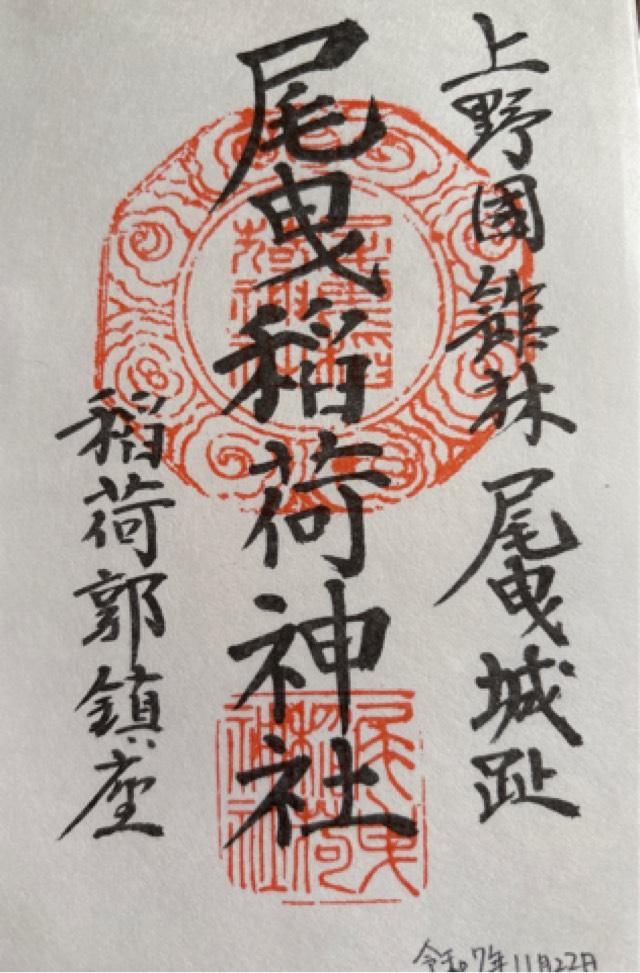 上野国館林尾曳城趾
尾曳稲荷神社
稲荷郭鎮座
尾曳
稲荷
神社
令和7年11月22日